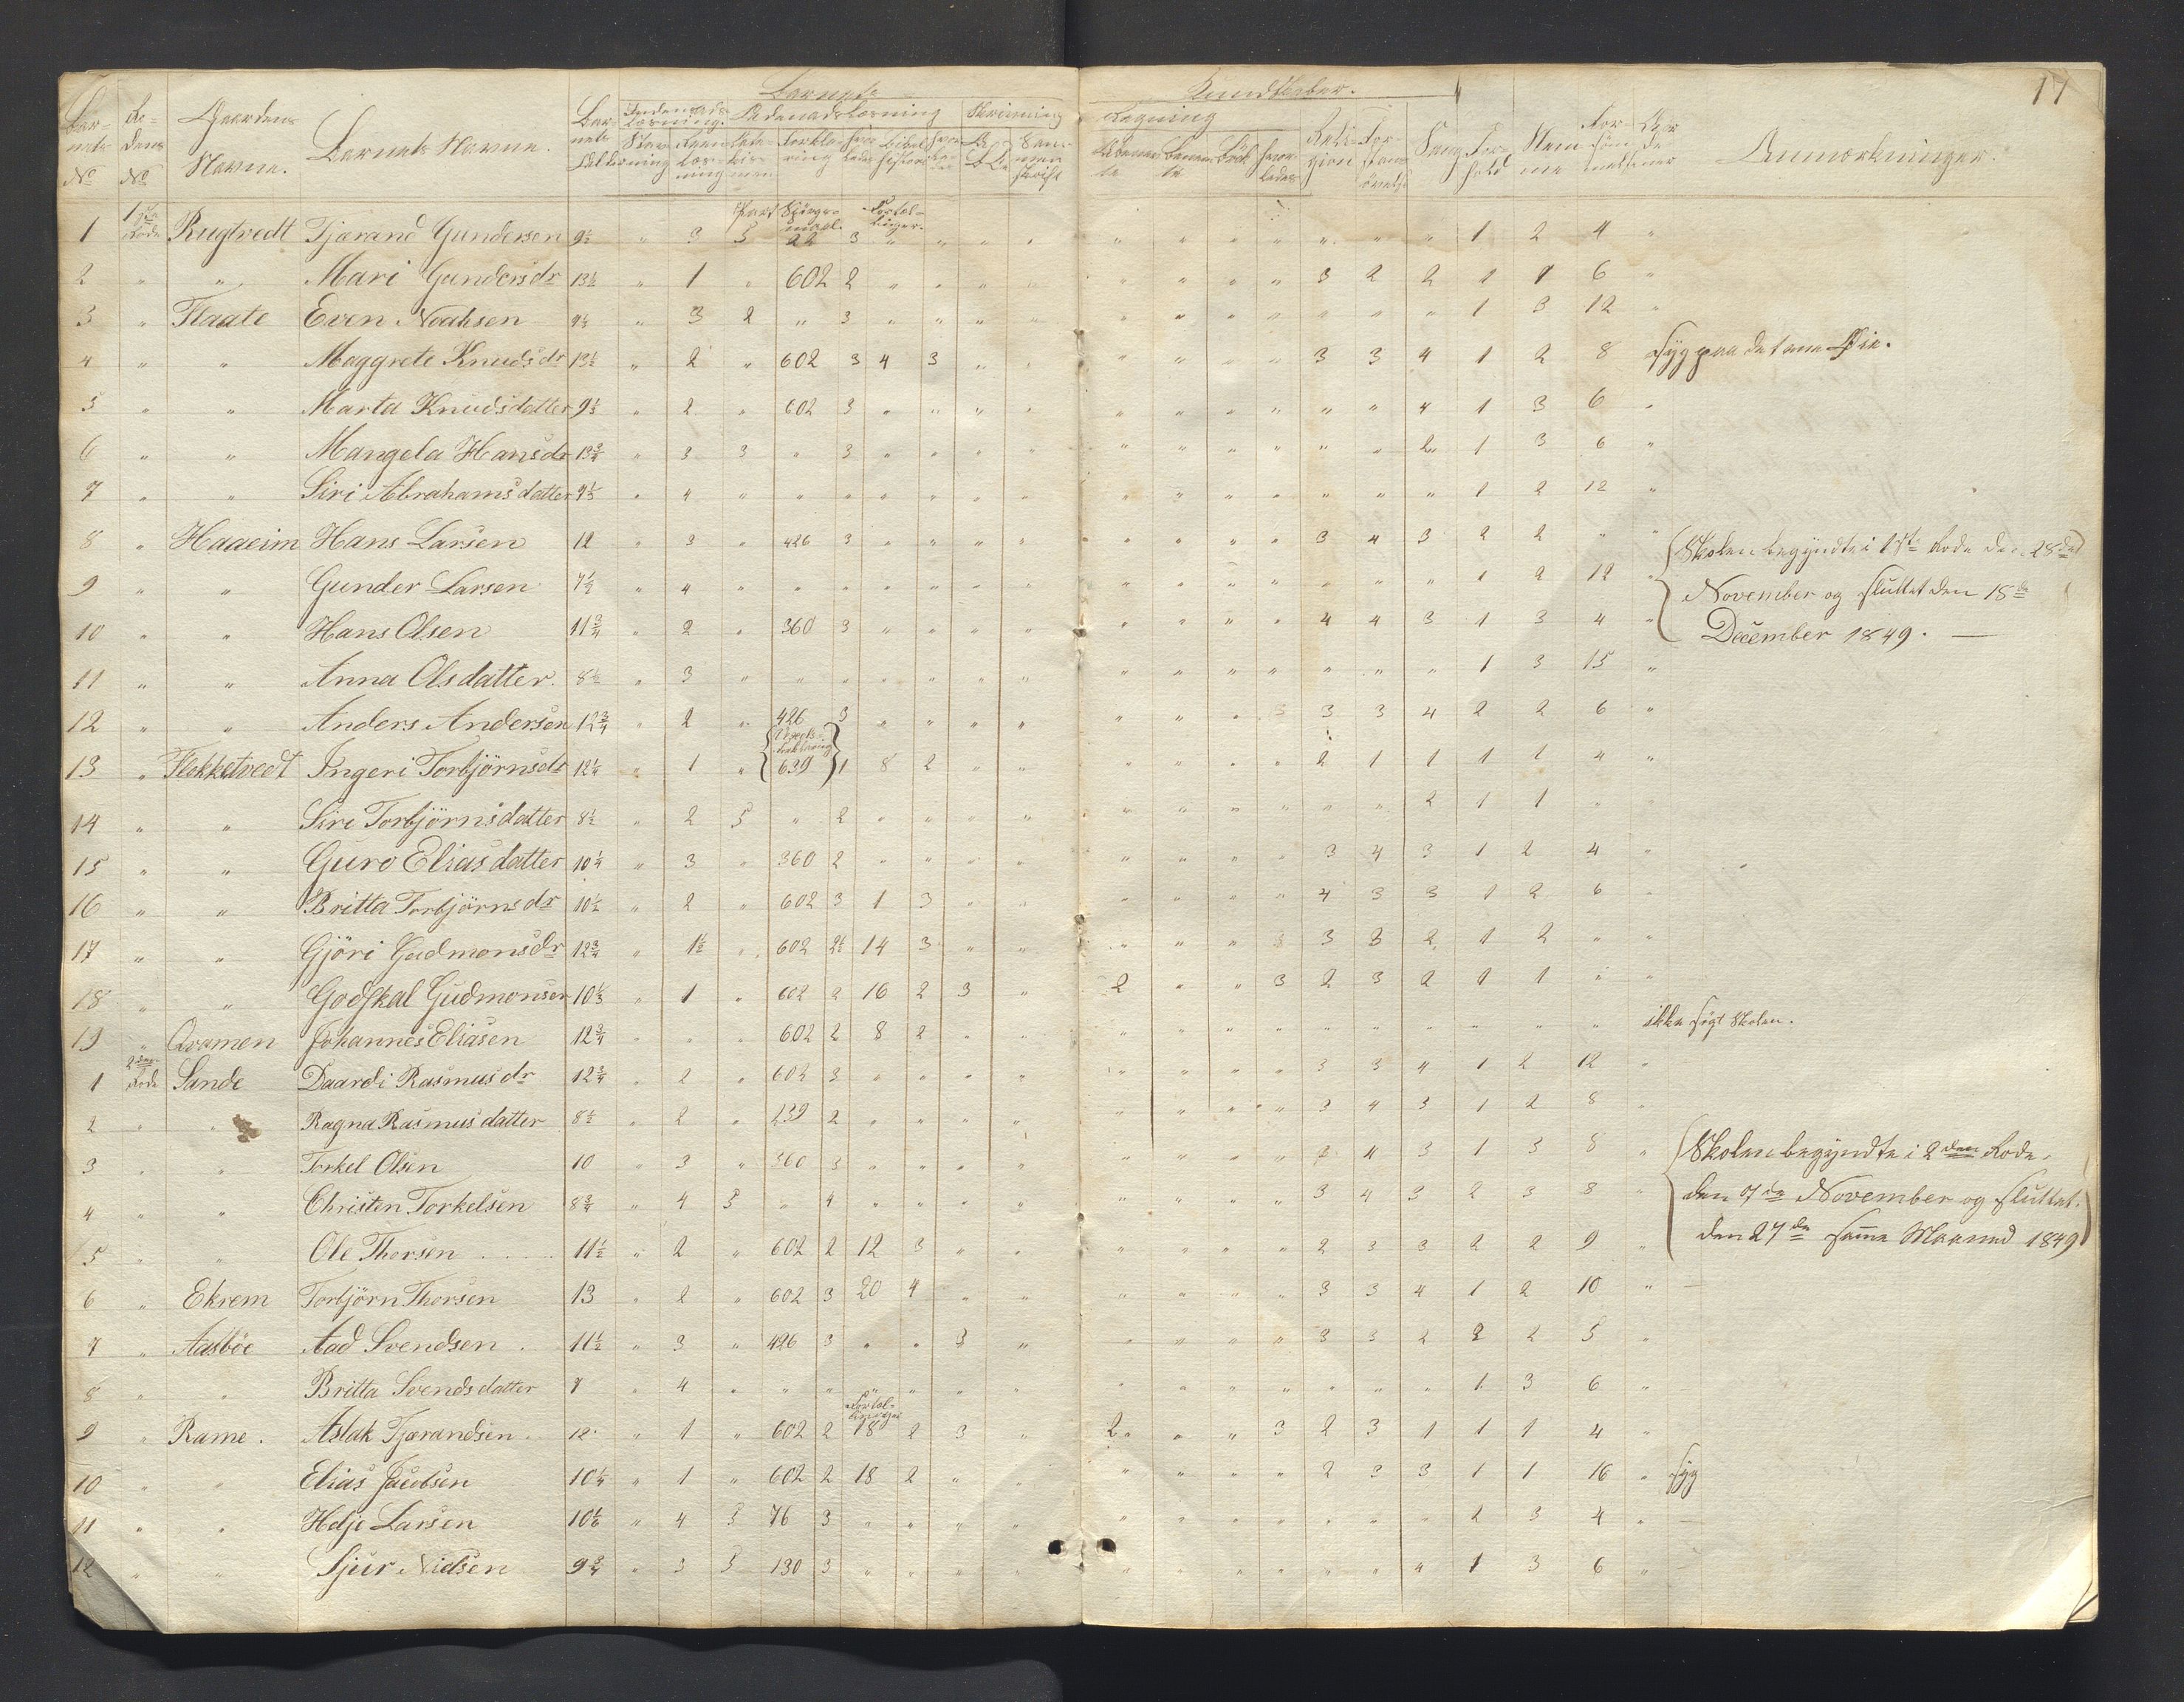 17
Barnets Kundskaber.
Barnets No Rodens No Gaardens Navne. Barnets Navne. Barnets Alder Indenadslæsning. Udenadslæsning Skrivning Regning Religion Sang Forhold Anmærkninger.
Part Spørgsmaal. Fortællinger.
1 1ste Rode Rugtvedt Tjærand Gundersen 9½ " 3 5 22 3 " " " " " " " " " " " 1 2 4 "
2 " " Mari Gundersdr 13½ " 1 " 602 2 " " " " " " " " 3 2 2 1 1 6 "
3 " Flaate Even Noahsen 9½ " 3 2 " 3 " " " " " " " " " " " 1 3 12 "
4 " " Maggrete Knudsdr 13½ " 2 " 602 3 4 3 " " " " " " 3 3 4 1 2 8 Syg paa det ene Øie.
5 " " Marta Knudsdatter 9⅓ " 2 " 602 3 " " " " " " " " " " 4 1 3 6 "
6 " " Mangela Hansdr 13¾ " 3 3 " 3 " " " " " " " " " " 2 1 3 6 "
7 " " Siri Abrahamsdatter 9⅓ " 4 " " " " " " " " " " " " " " 1 2 12 "
8 " Haaeim Hans Larsen 12 " 3 " 426 3 " " " " " " " " 3 4 3 2 2 " "
Skolen begyndte i 1ste Rode den 28de
9 " " Gunder Larsen 7½ " 4 " " " " " " " " " " " " " " 1 2 12 "
November og sluttet den 18de
10 " " Hans Olsen 11¾ " 2 " 360 3 " " " " " " " " 4 4 3 1 3 4 "
December 1849. —
11 " " Anna Olsdatter. 8½ " 3 " " " " " " " " " " " " " " 1 3 15 "
12 " " Anders Andersen 12¾ " 2 " 426 3 " " " " " " " 3 3 3 4 2 2 6 "
13 " Flekketvedt Ingeri Torbjörnsdr 12¼ " 1 " 639 1 8 2 " " " " " " 2 1 1 1 1 4 "
14 " " Siri Torbjörnsdatter 8½ " 2 5 " 2 " " " " " " " " " " 2 1 1 " "
15 " " Guro Eliasdatter 10¼ " 3 " 360 2 " " " " " " " " 3 4 3 1 2 4 "
16 " " Britta Torbjörnsdr 10½ " 2 " 602 3 1 3 " " " " " " 4 3 3 1 2 6 "
17 " " Gjöri Gudmonsdr 12¾ " 1½ " 602 2½ 14 3 " " " " " 3 3 3 2 1 2 " "
18 " " Godskal Gudmonsen 10⅓ " 1 " 602 2 16 2 3 " 2 " " 3 2 3 2 1 1 " "
19 " Qvamen Johannes Eliasen 12¾ " " " 602 2 8 2 " " " " " " " " " " " " ikke søgt Skolen.
1 2den Rode Sande Daardi Rasmusdr 12¾ " 2 " 602 3 " " " " " " " " 3 3 4 1 2 12 "
2 " " Ragna Rasmusdatter 8½ " 2 " 239 2 " " " " " " " " 3 4 3 1 2 8 "
3 " " Torkel Olsen 10 " 3 " 360 3 " " " " " " " " 4 3 1 3 8 "
Skolen begyndte i 2den Rode,
4 " " Christen Torkelsen 8¾ " 4 5 " 4 " " " " " " " " 3 4 3 2 3 8 "
den 7de November og sluttet.
5 " " Ole Thorsen 11½ " 2 " 602 2 12 3 " " " " " " 2 3 3 2 2 9 "
den 27de samme Maaned 1849
6 " Ekrem Torbjörn Thorsen 13 " 2 " 602 3 20 4 " " " " " " 3 3 4 1 2 10 "
7 " Aasböe Aad Svendsen 11½ " 3 " 426 3 " " 3 " " " " " 3 3 2 2 2 5 "
8 " " Britta Svendsdatter 7 " 4 " " " " " " " " " " " " " " 1 3 6 "
Fortællinger
9 " Rame. Aslak Tjærandsen. 12 " 1 " 602 2 18 2 3 " 2 " " 3 2 3 1 1 1 4 "
10 " " Elias Jacobsen 10¼ " 1 " 602 2 18 2 " " " " " " 2 3 3 1 1 16 " syg
11 " " Helje Larsen 10⅙ " 4 3 76 3 " " " " " " " " " " " 2 3 4 "
12 " " Sjur Nielsen 9¾ " 3 5 130 3 " " " " " " " " " " 4 1 3 6 "